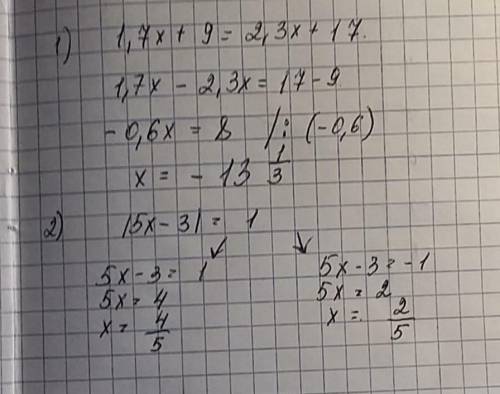 1) 1,7x + 9 = 2,3x + 17.
1,7x - 2,3x = 17 - 9
- 0,6x = 8 /: (-0,6)
x = - 13 1/3
2) |5x - 3| = 1
↙ ↘
5x - 3 = 1 5x - 3 = -1
5x = 4 5x = 2
x = 4/5 x = 2/5